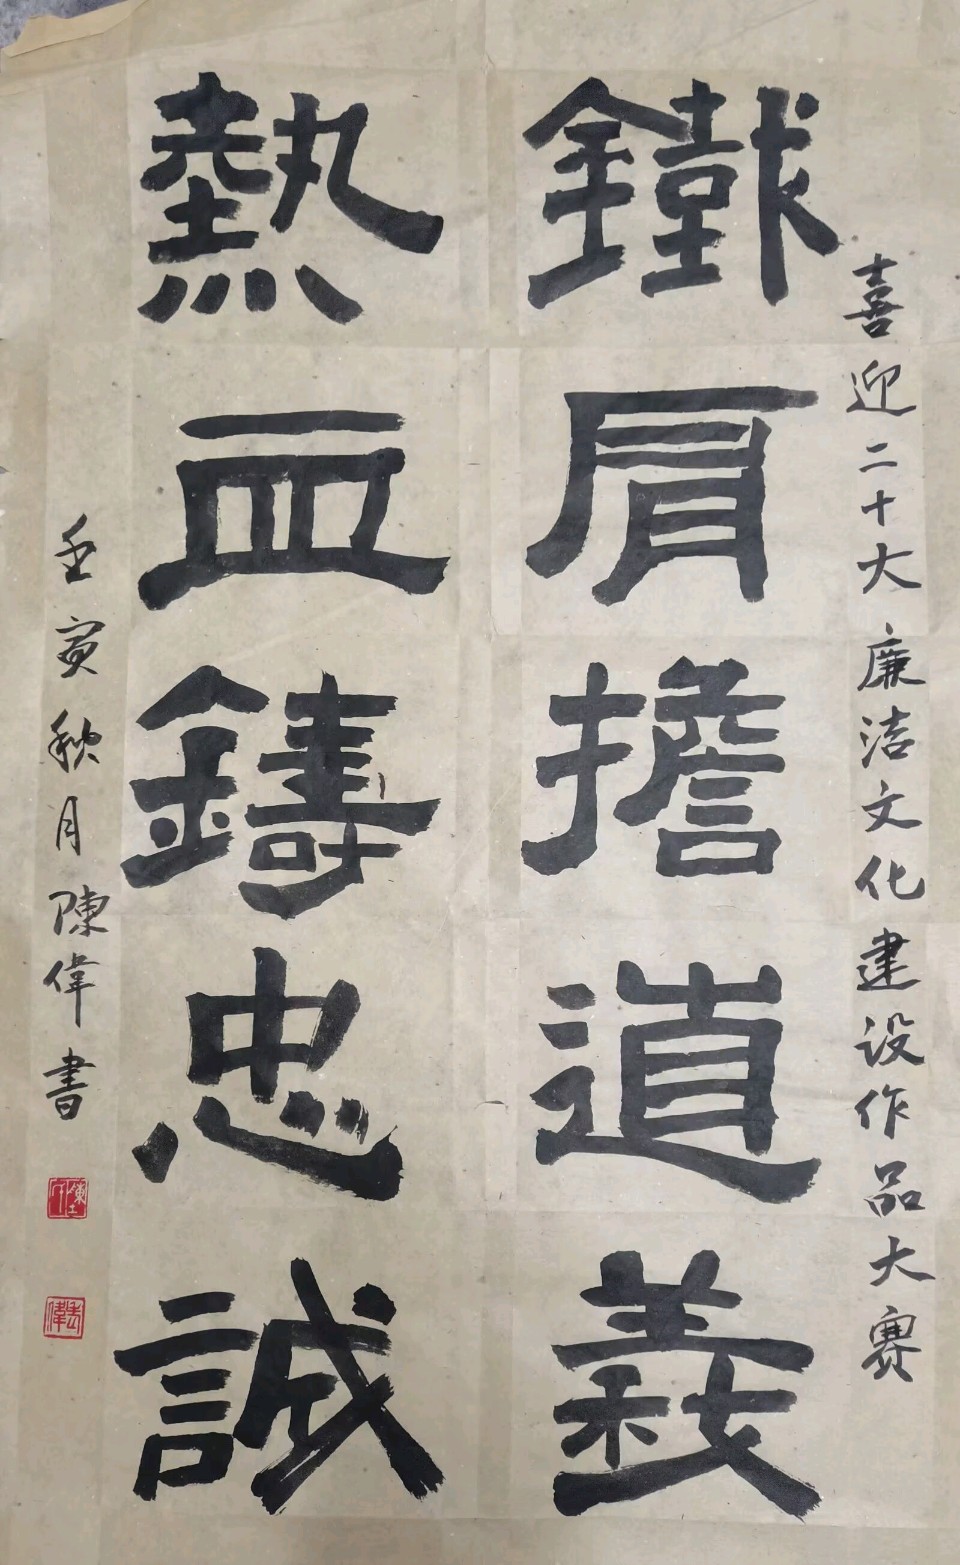 喜迎二十大廉洁文化建设作品大赛
鐵肩擔道義
熱血鑄忠誠
壬寅秋月陳偉書